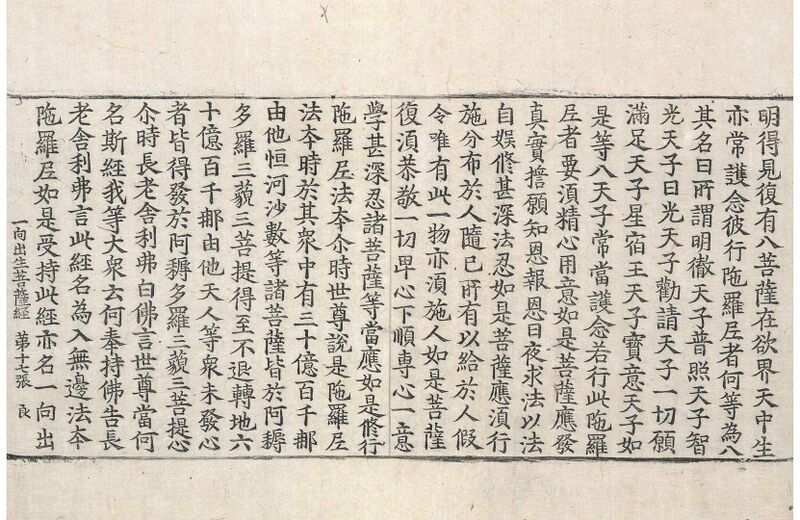 明得見復有八菩薩在欲界天中生
亦常護念彼行陁羅𡰱者何等為八
其名曰所謂明徹天子普照天子智
光天子日光天子勸請天子一切願
滿足天子星宿王天子寶意天子如
是等八天子常當護念若行此陁羅
𡰱者要須精心用意如是菩薩應發
真實擔願知恩報恩日夜求法以法
自娛修甚深法忍如是菩薩應須行
施分布於人隨已所有以給於人假
令唯有此一物亦須施人如是菩薩
復須恭敬一切卑心下順專心一意
學甚深忍諸菩薩等當應如是修行
陁羅𡰱法夲尒時世尊說是陁羅𡰱
法夲時於其衆中有三十億百千那
由他恒河沙數等諸菩薩皆於阿耨
多羅三藐三菩提得至不退轉地六
十億百千那由他天人等衆未發心
者皆得發於阿耨多羅三藐三菩提心
尒時長老舍利弗白佛言世尊當何
名斯經我等大衆云何奉持佛告長
老舍利弗言此經名為入無邊法夲
陁羅𡰱如是受持此經亦名一向出
一向出生菩薩經 第十七張 良